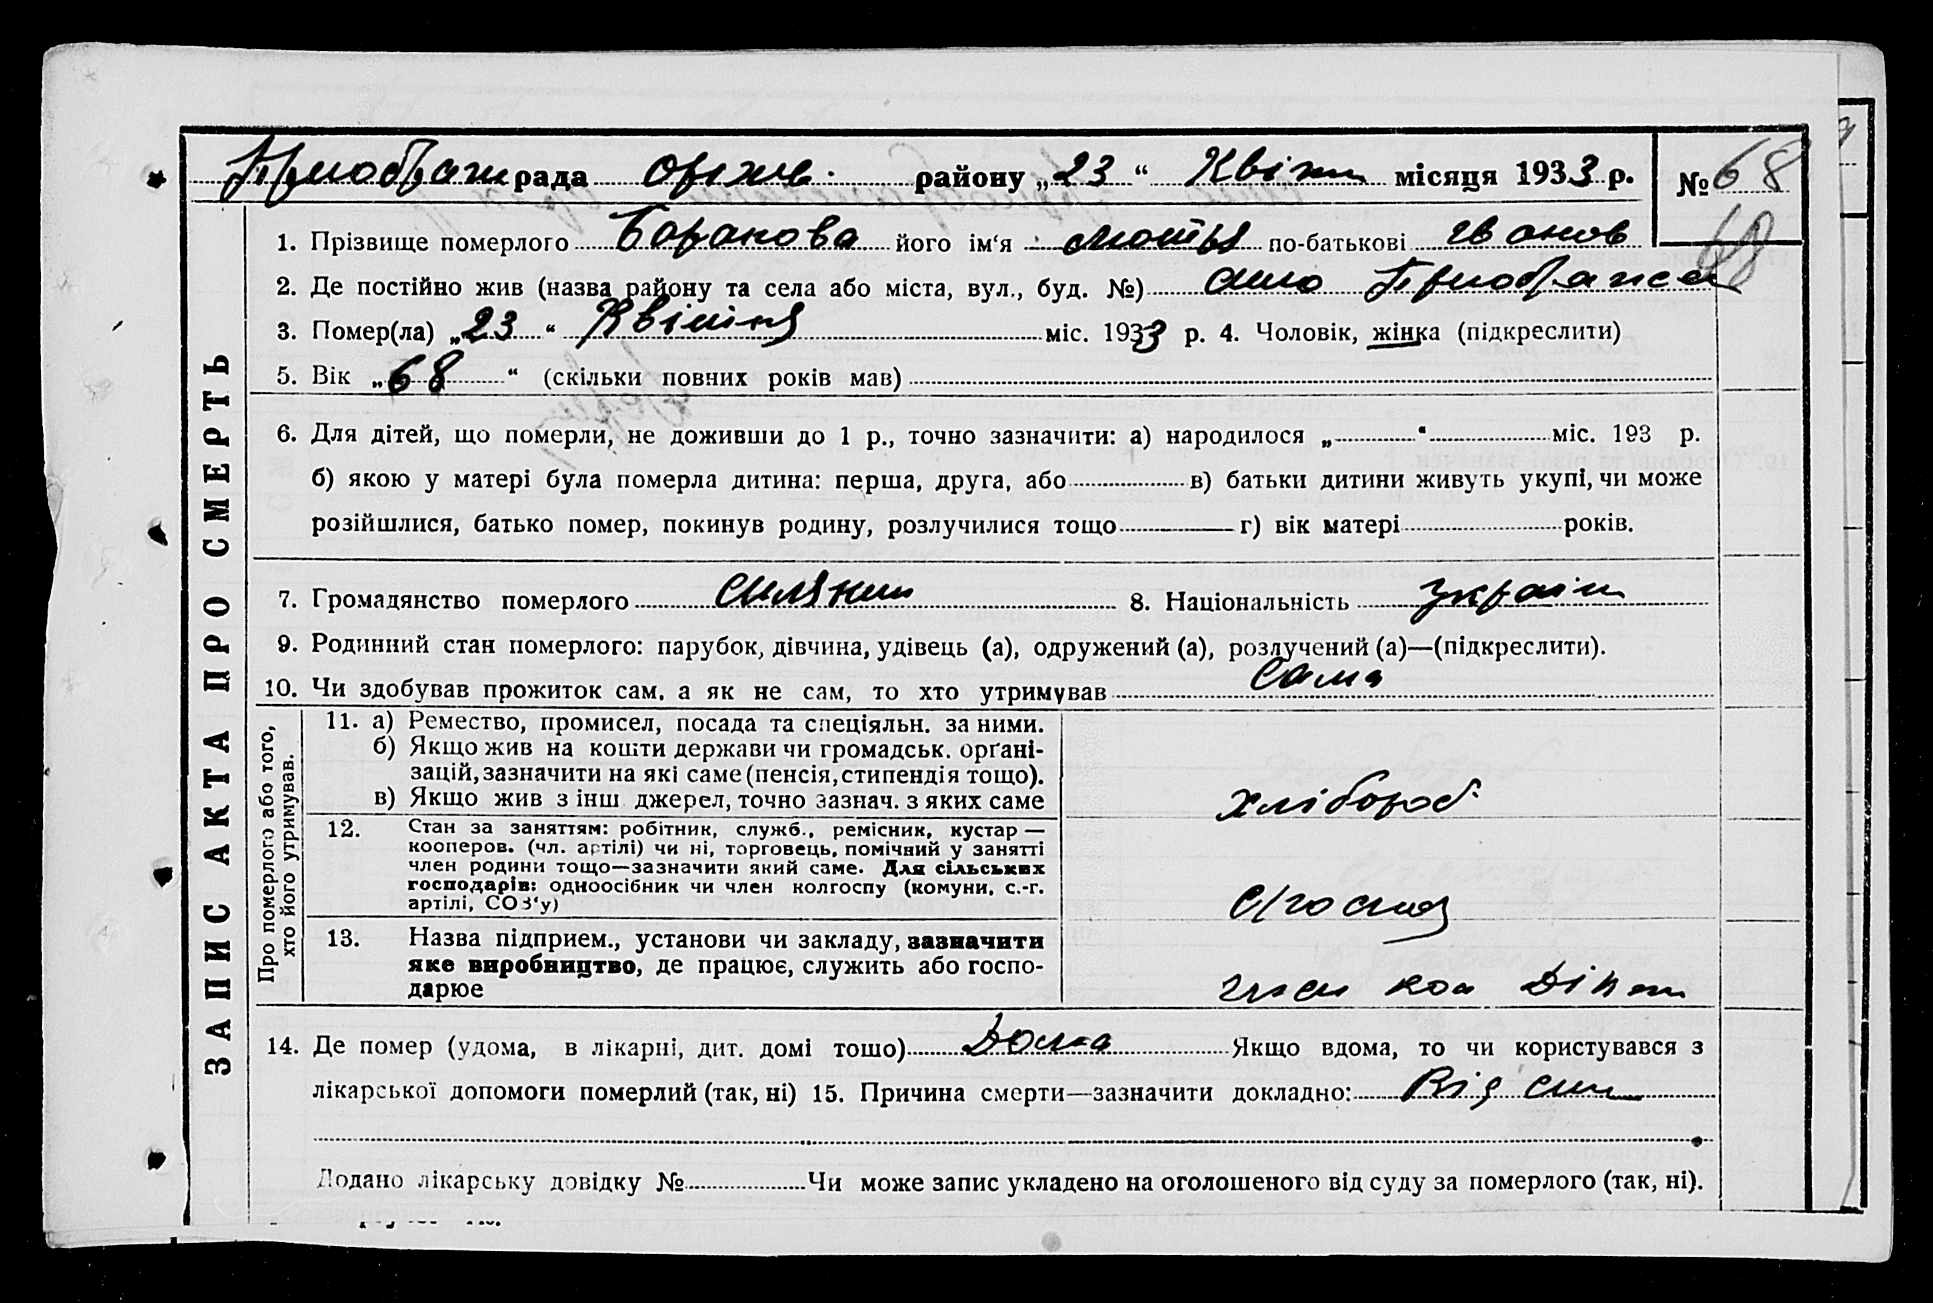 рада района „23“ Квітн місяця 1933 р. № 68
68
1. Прізвище померлого Баранова його ім‘я Мотря по-батькові Іванов
2. Де постійно жив (назва району та села або міста, вул., буд. №) село
3. Помер(ла) „23“ Квітня міс. 1933 р. 4. Чоловік, жінка (підкреслити)
5. Вік „68“ (скільки повних років мав)
6. Для дітей, що померли, не доживши до 1 р., точно зазначити: а) народилося „ “ міс. 193 р.
б) якою у матері була померла дитина: перша, друга, або в) батьки дитини живуть укупі, чи може
розійшлися, батько помер, покинув родину, розлучилися тощо г) вік матері років.
7. Громадянство померлого селянин 8. Національність україн
9. Родинний стан померлого: парубок, дівчина, удівець (а), одружений (а), розлучений (а)—(підкреслити).
10. Чи здобував прожиток сам, а як не сам, то хто утримував сама
ЗАПИС АКТА ПРО СМЕРТЬ
Про померлого або того,
хто його утримував.
11. а) Ремество, промисел, посада та спеціяльн. за ними.
б) Якщо жив на кошти держави чи громадськ. органі-
зацій, зазначити на які саме (пенсія, стипендія тощо).
в) Якщо жив з інш джерел, точно зазнач. з яких саме
хлібороб
12. Стан за заняттям: робітник, служб., ремісник, кустар —
кооперов. (чл. артілі) чи ні, торговець, помічний у занятті
член родини тощо—зазначити який саме. Для сільських
господарів: одноосібник чи член колгоспу (комуни, с.-г.
артілі, СОЗ‘у)
13. Назва підприєм., установи чи закладу, зазначити
яке виробництво, де працює, служить або госпо-
дарює
14. Де помер (удома, в лікарні, дит. домі тощо) Дома Якщо вдома, то чи користувався з
лікарської допомоги померлий (так, ні) 15. Причина смерти—зазначити докладно: Від
Додано лікарську довідку № Чи може запис укладено на оголошеного від суду за померлого (так, ні).